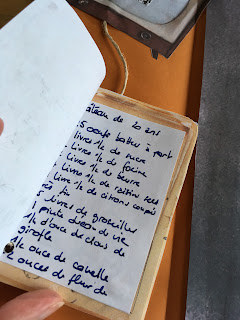 âteau de 20 ans
5 oeufs battus à part
livres ½ de sucre
livres ½ de farine
livres ½ de beurre
livre ½ de raisins secs
livre ½ de citrons coupés
ès fin
5 livres de groseilles
1 pinte d'eau de vie
½ d'once de clous de
girofle
½ once de canelle
2 onces de fleur de